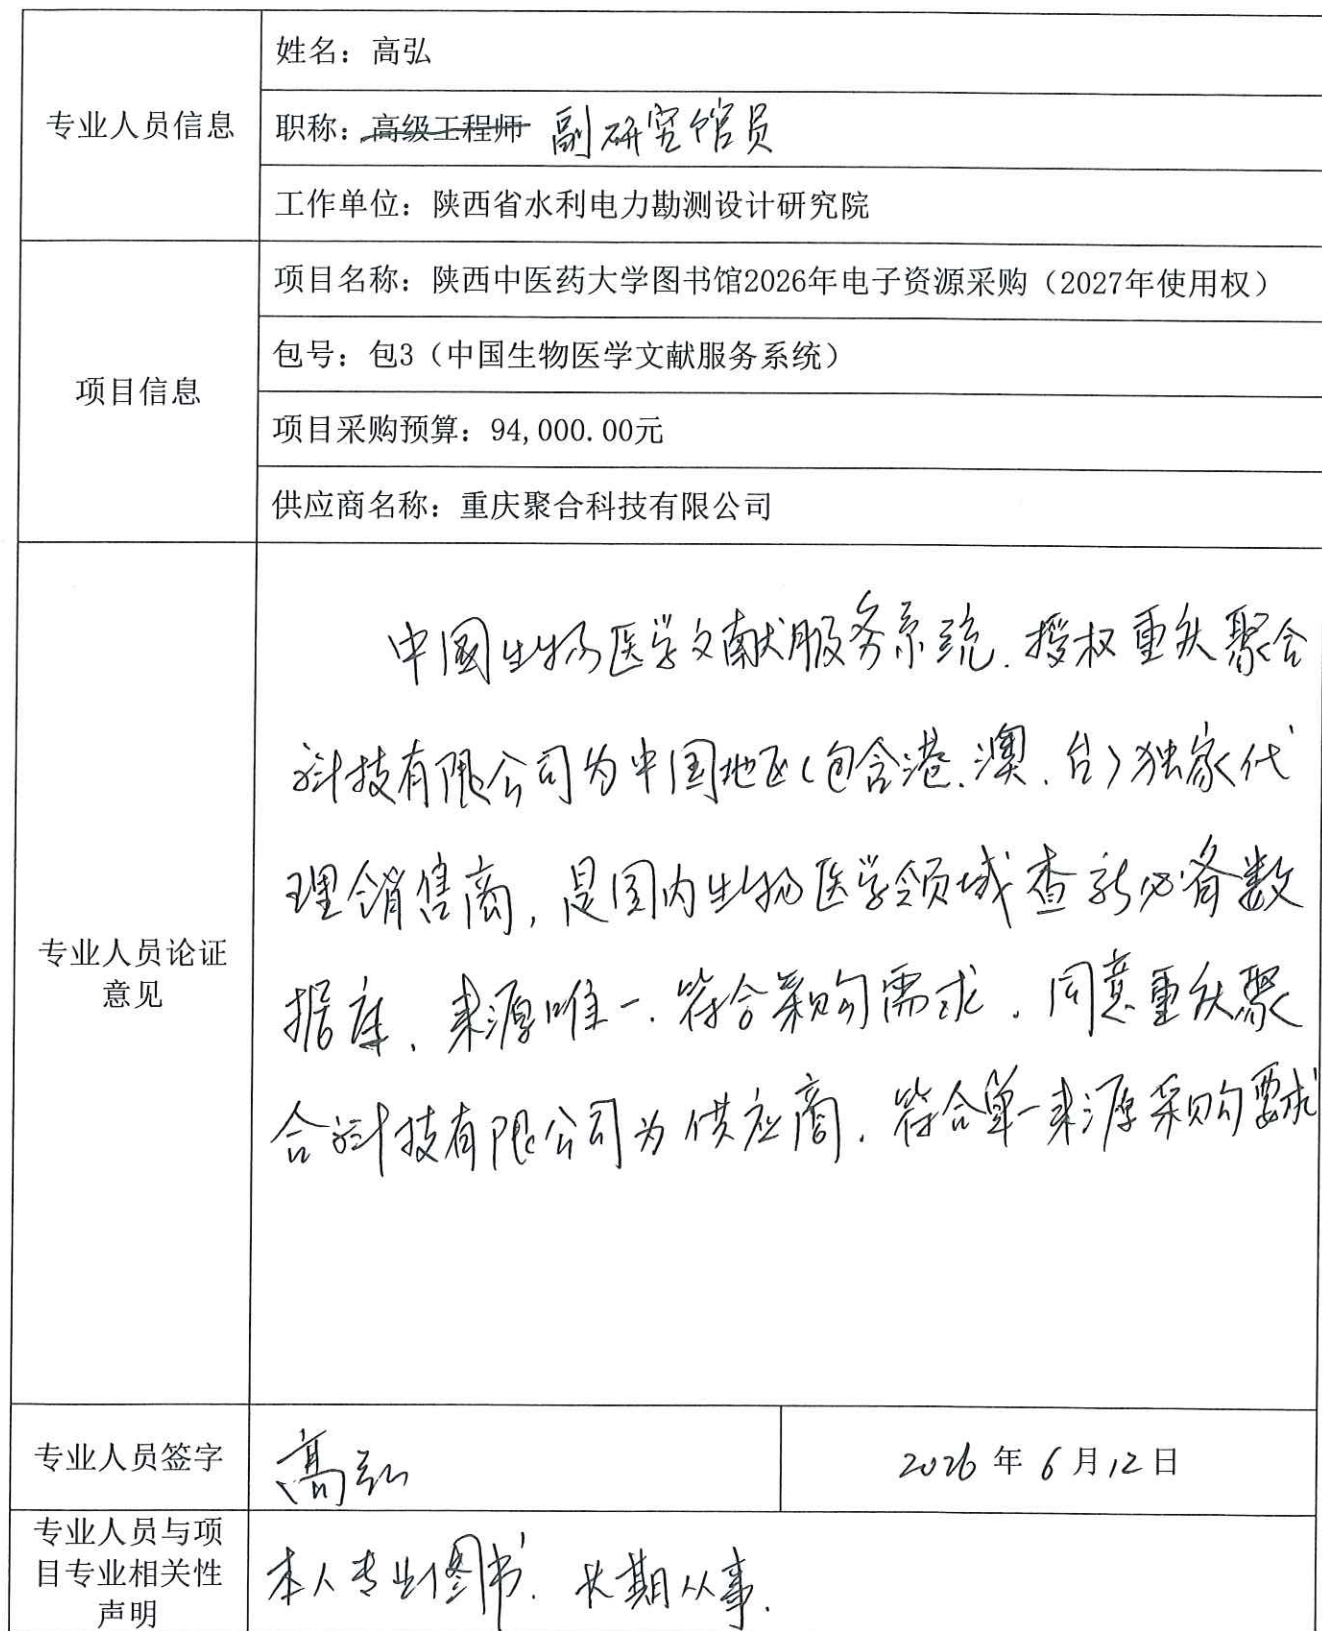 专业人员信息
姓名：高弘
职称：高级工程师 副研究馆员
工作单位：陕西省水利电力勘测设计研究院
项目信息
项目名称：陕西中医药大学图书馆2026年电子资源采购（2027年使用权）
包号：包3（中国生物医学文献服务系统）
项目采购预算：94,000.00元
供应商名称：重庆聚合科技有限公司
专业人员论证
意见
中国生物医学文献服务系统.授权重庆聚合
科技有限公司为中国地区(包含港.澳.台)独家代
理销售商,是国内生物医学领域查新必备数
据库.来源唯一.符合采购需求.同意重庆聚
合科技有限公司为供应商.符合单一来源采购要求
专业人员签字
高弘
2026年6月12日
专业人员与项
目专业相关性
声明
本人专业图书.长期从事.